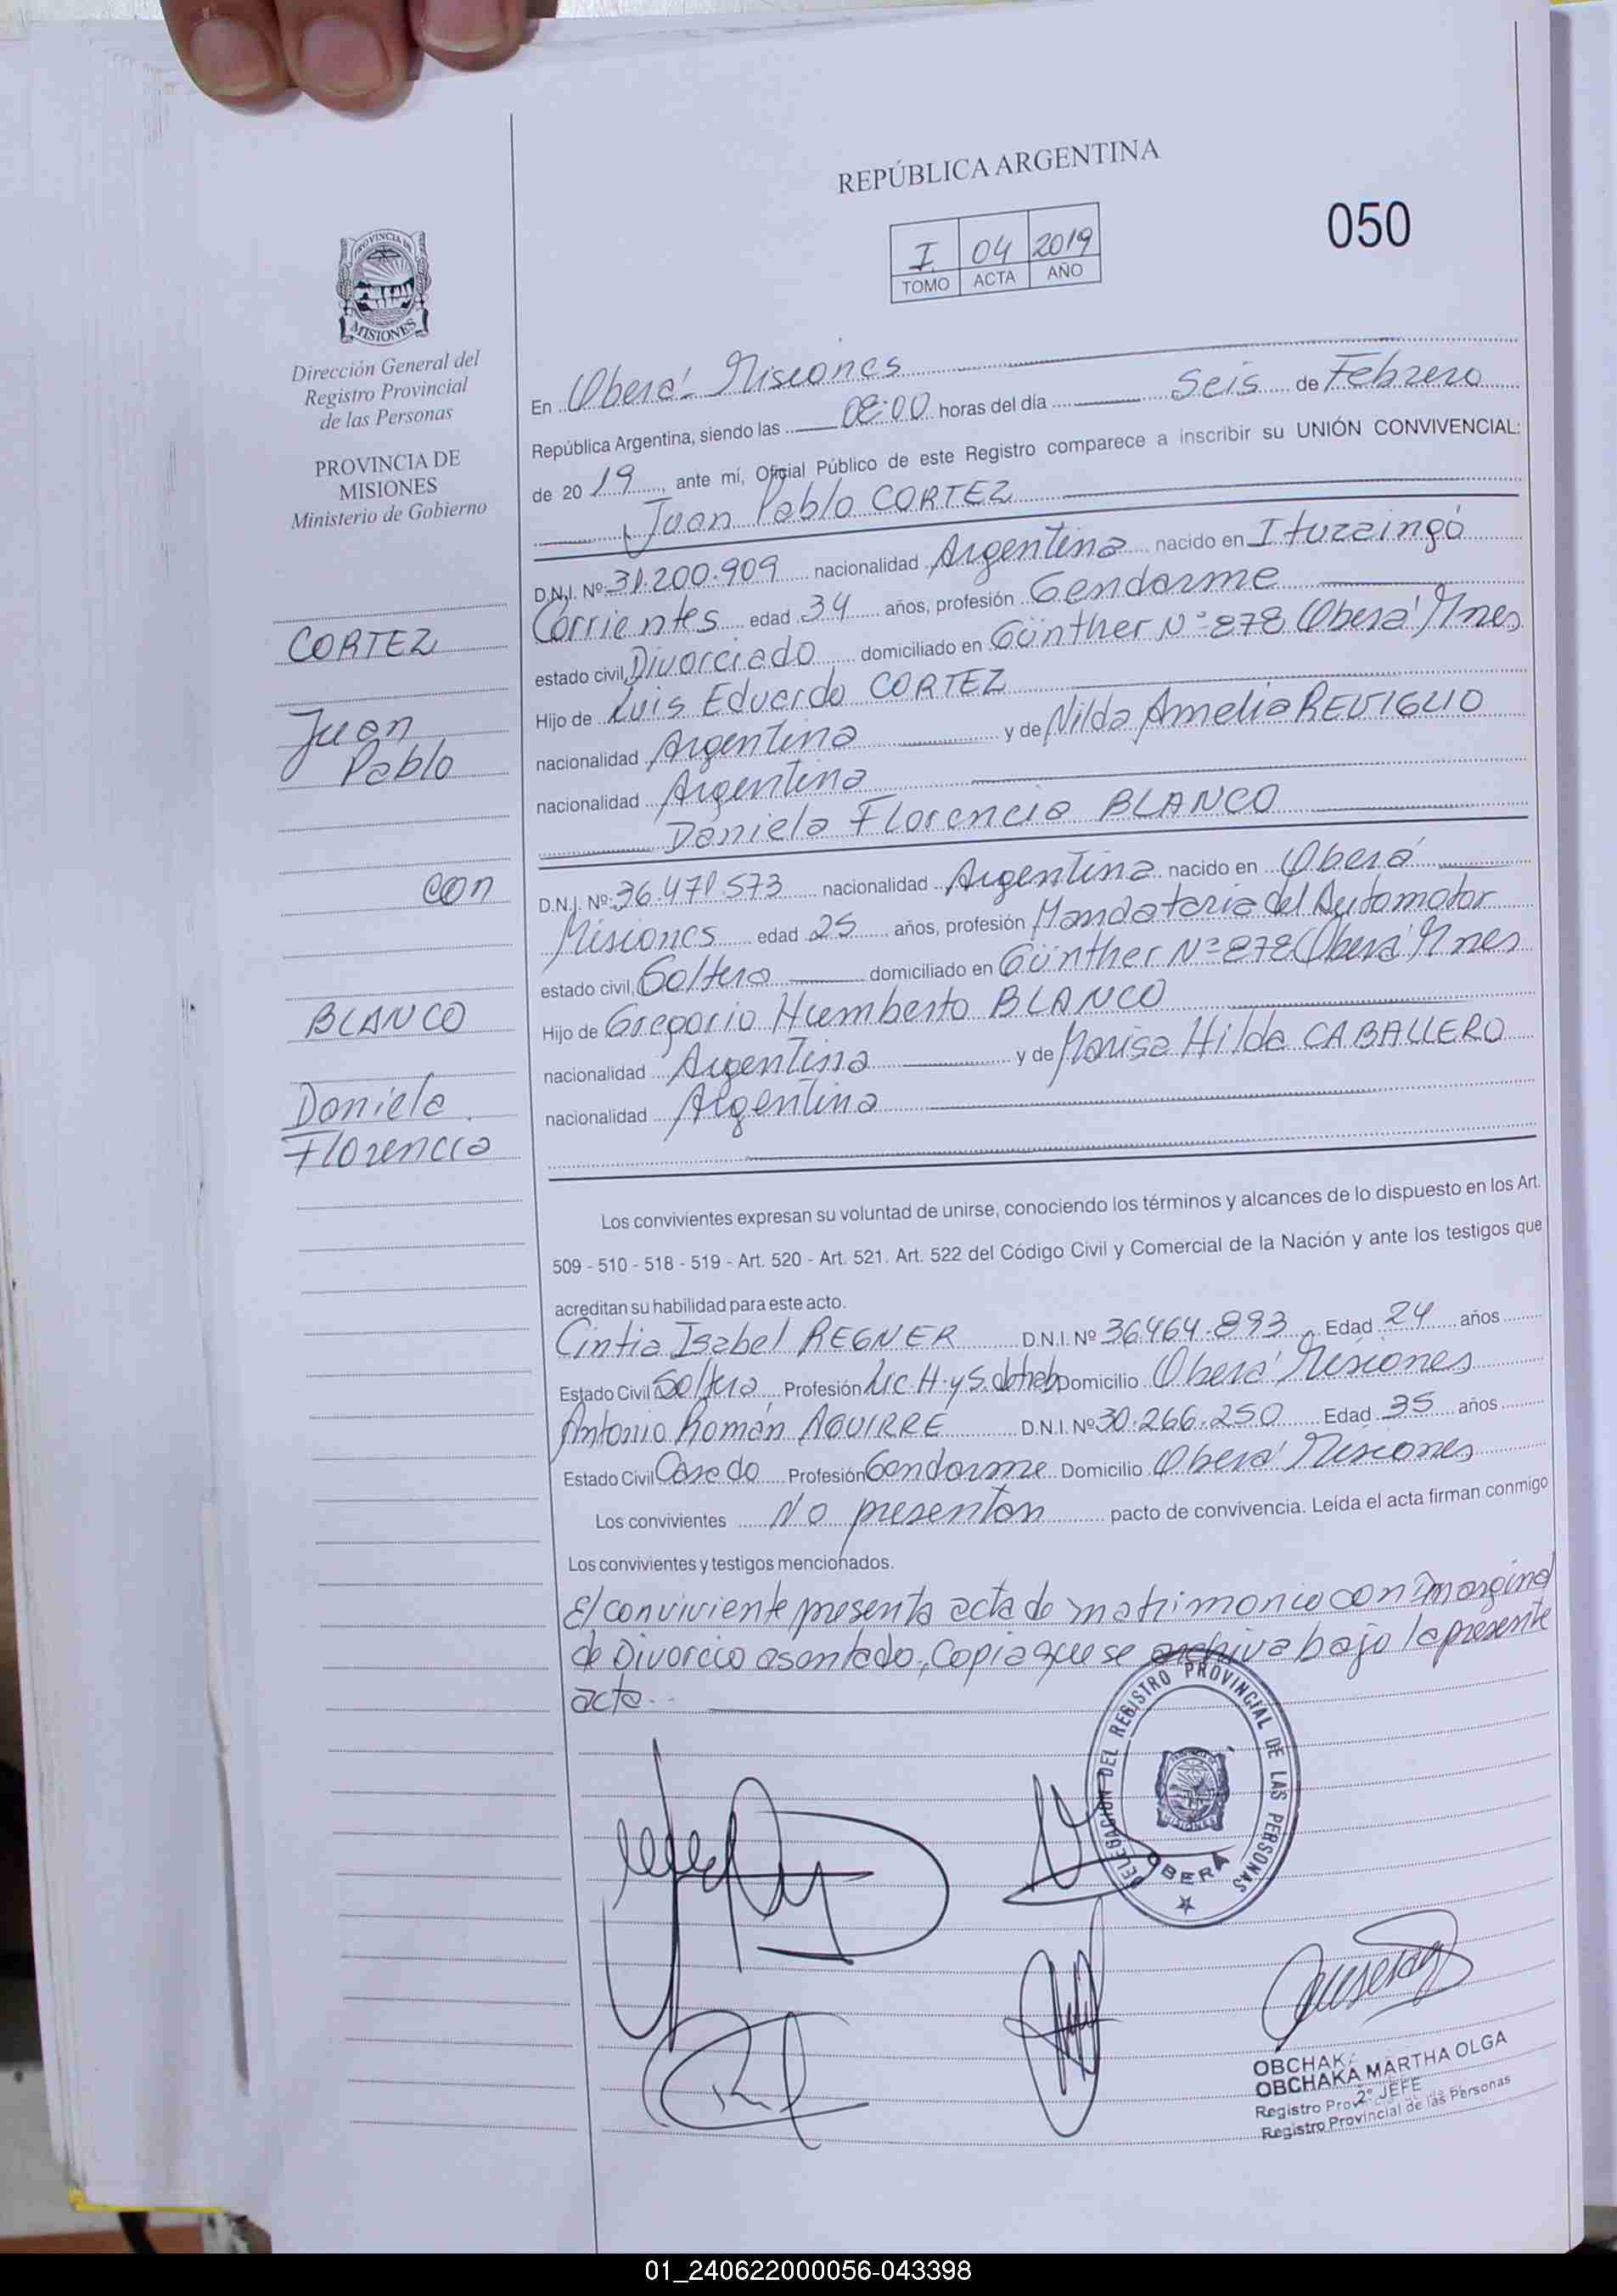 REPÚBLICA ARGENTINA
050
I 04 2019
TOMO ACTA AÑO
PROVINCIA DE
MISIONES
Dirección General del
Registro Provincial
de las Personas
PROVINCIA DE
MISIONES
Ministerio de Gobierno
CORTEZ
Juan
Pablo
con
BLANCO
Daniela
Florencia
En Oberá Misiones
República Argentina, siendo las 08:00 horas del día Seis de Febrero
de 2019, ante mí, Oficial Público de este Registro comparece a inscribir su UNIÓN CONVIVENCIAL:
Juan Pablo CORTEZ
D.N.I. Nº 31.200.909 nacionalidad Argentina nacido en Ituzaingó
Corrientes edad 34 años, profesión Gendarme
estado civil, Divorciado domiciliado en Günther Nº 878 Oberá Mnes
Hijo de Luis Eduardo CORTEZ
nacionalidad Argentina y de Nilda Amelia REVIGLIO
nacionalidad Argentina
Daniela Florencia BLANCO
D.N.I. Nº 36.471.573 nacionalidad Argentina nacido en Oberá
Misiones edad 25 años, profesión Mandataria del Automotor
estado civil, Soltera domiciliado en Günther Nº 878 Oberá Mnes
Hijo de Gregorio Humberto BLANCO
nacionalidad Argentina y de Marisa Hilda CABALLERO
nacionalidad Argentina
Los convivientes expresan su voluntad de unirse, conociendo los términos y alcances de lo dispuesto en los Art.
509 - 510 - 518 - 519 - Art. 520 - Art. 521. Art. 522 del Código Civil y Comercial de la Nación y ante los testigos que
acreditan su habilidad para este acto.
Cintia Isabel REGNER D.N.I. Nº 36.464.893 Edad 24 años
Estado Civil Soltera Profesión Lic H. y S. del trab Domicilio Oberá Misiones
Antonio Román AGUIRRE D.N.I. Nº 30.266.250 Edad 35 años
Estado Civil Casado Profesión Gendarme Domicilio Oberá Misiones
Los convivientes No presentan pacto de convivencia. Leída el acta firman conmigo
Los convivientes y testigos mencionados.
El conviviente presenta acta de matrimonio con marginal
de Divorcio asentado, Copia que se archiva bajo la presente
acta.
DELEGACION DEL REGISTRO PROVINCIAL DE LAS PERSONAS
OBERÁ
OBCHAK
OBCHAKA MARTHA OLGA
2º JEFE
Registro Prov
Registro Provincial de las Personas
01_240622000056-043398